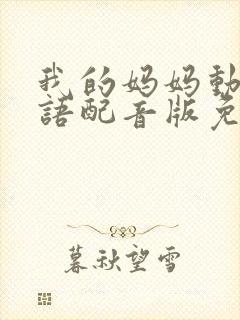 我的妈妈動
語配音版免
暮秋望雪